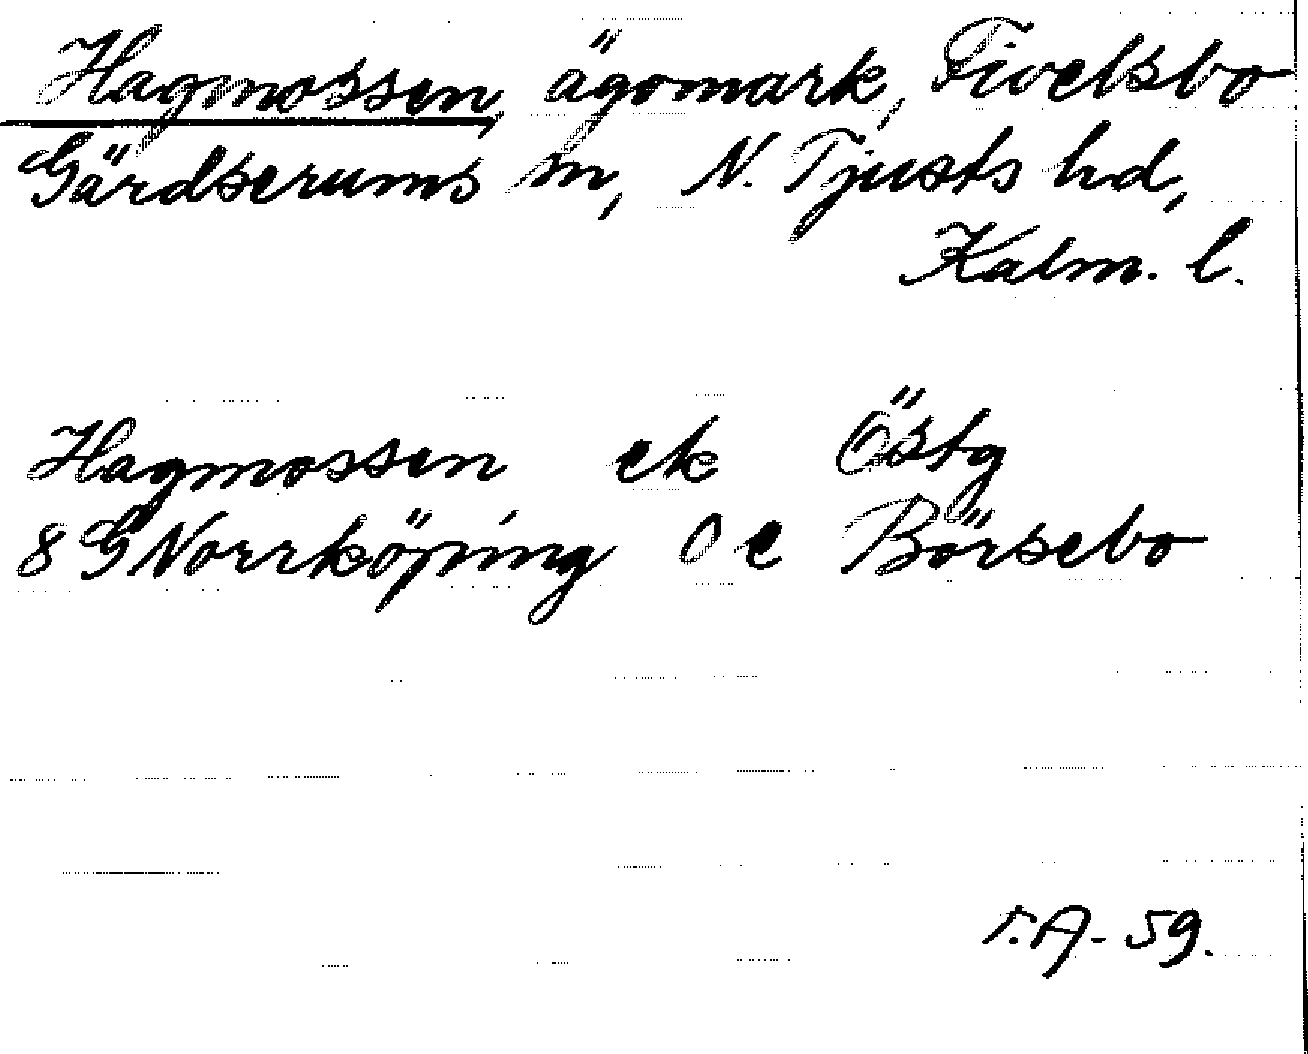 Hagmossen, ägomark, Fivelsbo
Gärdserums sn, N. Tjusts hd,
Kalm. l.
Hagmossen ek Östg
8 G Norrköping 0 e Börsebo
r.A- 59.